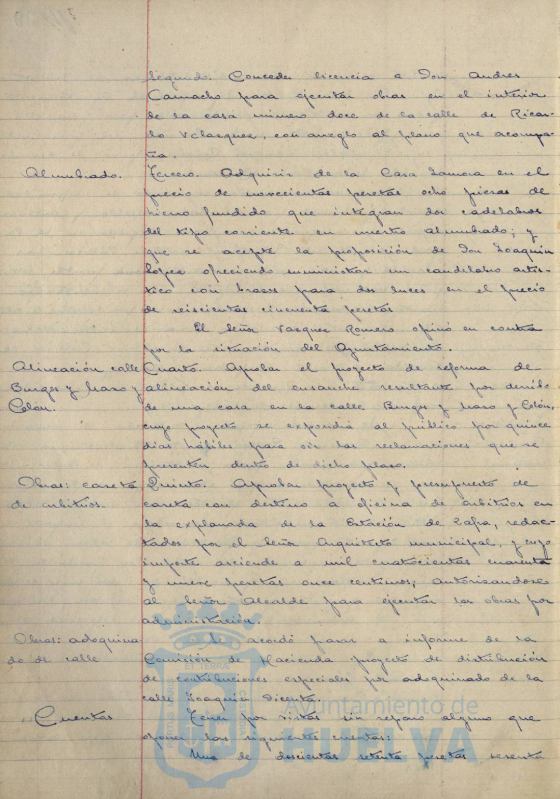 Segundo. Conceder licencia a Don Andres
Camacho para ejecutar obras en el interior
de la casa número doce de la calle de Ricar-
do Velazquez, con arreglo al plano que acompa-
ña.
Alumbrado. Tercero. Adquirir de la Casa Zamora en el
precio de novecientas pesetas ocho piezas de
hierro fundido que integran dos cadelabros
del tipo corriente en nuestro alumbrado; y
que se acepte la proposición de Don Joaquin
López ofreciendo suministrar un candelabro artis-
tico con brazos para dos luces en el precio
de seiscientas cincuenta pesetas
El Señor Vazquez Romero opinó en contra
por la situación del Ayuntamiento.
Alineación calle Cuarto. Aprobar el proyecto de reforma de
Burgos y Mazo y alineación del ensanche resultante por derribo
Colón. de una casa en la calle Burgos y Mazo y Colón,
cuyo proyecto se expondrá al público por quince
dias hábiles para oir las reclamaciones que se
presenten dentro de dicho plazo.
Obras: caseta Quinto. Aprobar proyecto y presupuesto de
de arbitrios. caseta con destino a oficina de arbitrios en
la explanada de la Estación de Zafra, redac-
tados por el Señor Arquitecto municipal, y cuyo
importe asciende a mil cuatrocientas cuarenta
y nueve pesetas once centimos, autorizandose
al Señor Alcalde para ejecutar las obras por
administración.
Obras: adoquina Se acordó pasar a informe de la
do de calle Comisión de Hacienda proyecto de distribución
de contribuciones especiales por adoquinado de la
calle Joaquín Dicenta.
Cuentas Tener por vistas sin reparo alguno que
oponer las siguientes cuentas:
Una de doscientas setenta pesetas sesenta
Ayuntamiento de
HUELVA